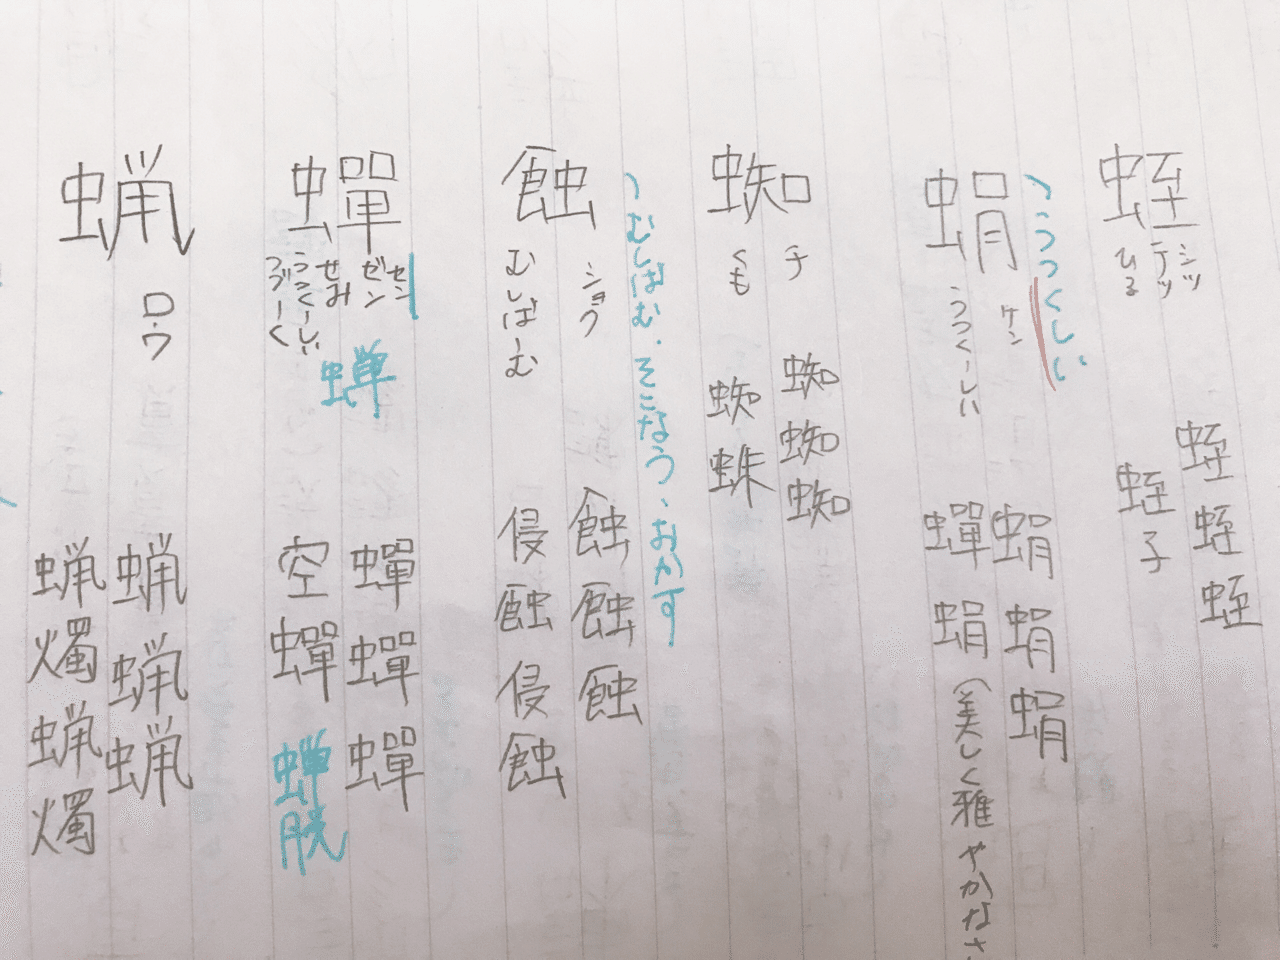 蛭
シツ
テツ
ひる
蛭蛭蛭
蛭子
うつくしい
蜎
ケン
うつく-しい
蜎蜎蜎
蟬蜎(美しく雅やかなさ
蜘
チ
くも
蜘蜘蜘
蜘蛛
むしばむ.そこなう、おかす
蝕
ショク
むしば-む
蝕蝕蝕
侵蝕侵蝕
蟬
セン
ゼン
せみ
うつく-しい
つづ-く
蝉
蟬蟬蟬
空蟬
蝉脱
蝋
ロウ
蝋蝋蝋
蝋燭蝋燭